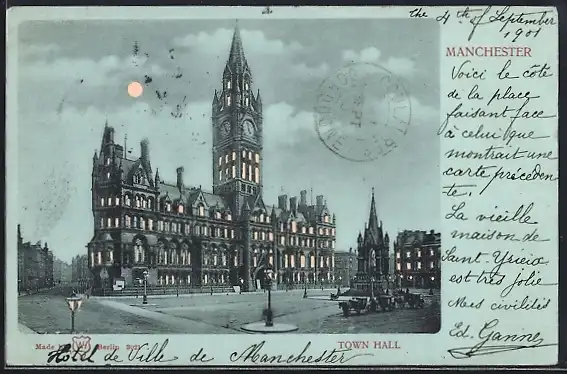 the 4th of September
1901
MANCHESTER
Voici le côté
de la place
faisant face
à celui que
montrait une
carte précéden
te.
La vieille
maison de
Saint-Yrieix
est très jolie
Mes civilités
Ed. Ganne
TOWN HALL
Made Berlin
Hôtel de Ville de Manchester